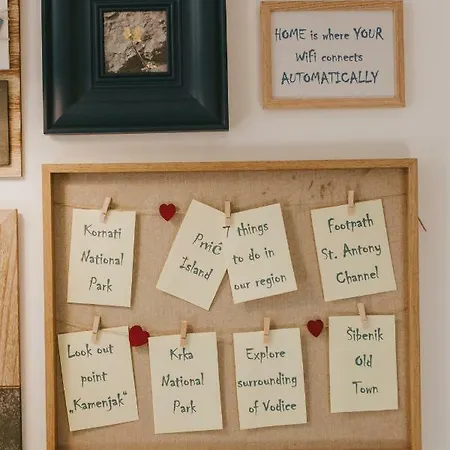 HOME is where YOUR
WiFi connects
AUTOMATICALLY
Kornati
National
Park
Prvić
Island
7 things
to do in
our region
Footpath
St. Antony
Channel
Look out
point
„Kamenjak"
Krka
National
Park
Explore
surrounding
of Vodice
Šibenik
Old
Town